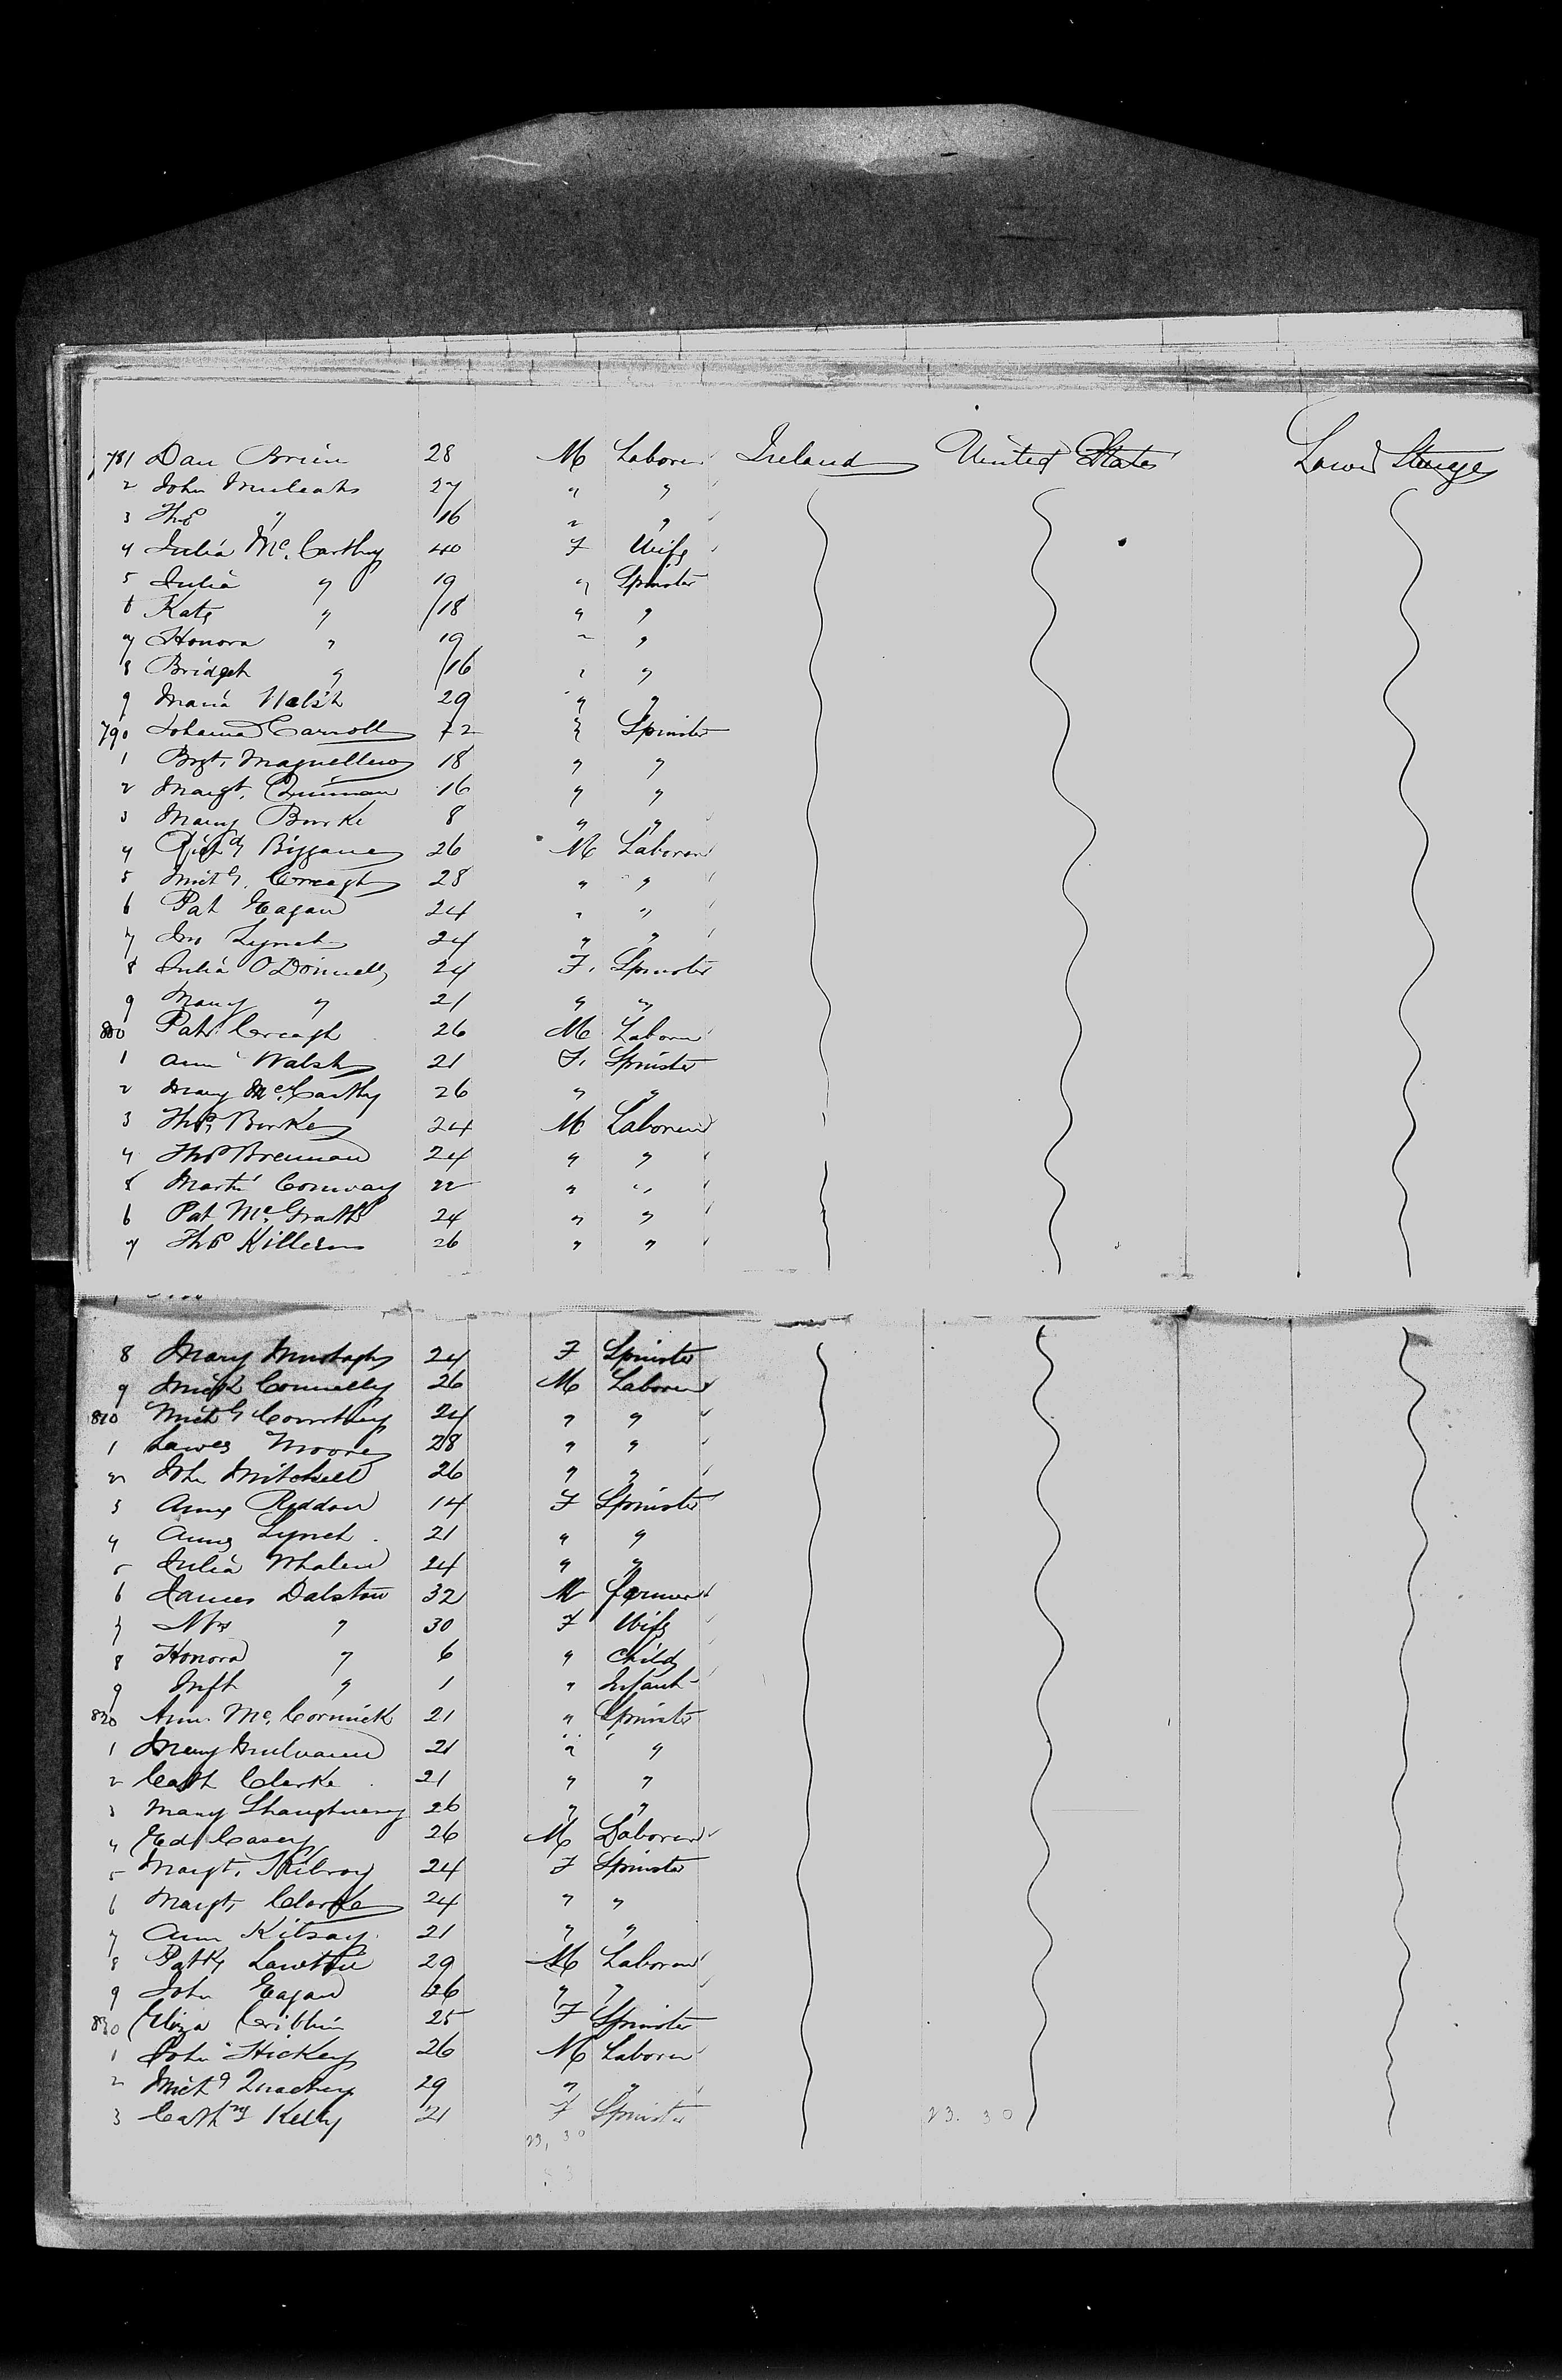 781 Dan Brien 28 M Laborer Ireland United States Lower Steerage
2 John 27 " "
3 Thos " 16 " "
4 Julia Mc.Carthy 40 F Wife
5 Julia " 19 " Spinster
6 Kate " 18 " "
7 Honora " 19 " "
8 Bridget " 16 " "
9 Maria Walsh 29 " "
790 Johanna Carroll 72 " Spinster
1 Brgt. 18 " "
2 Margt. 16 " "
3 Mary Burke 8 " "
4 26 M Laborer
5 Michl. Creagh 28 " "
6 Pat Eagan 24 " "
7 Jno Lynch 24 " "
8 Julia O'Donnell 24 F. Spinster
9 Mary " 21 " "
800 Patk Creagh 26 M Laborer
1 Ann Walsh 21 F. Spinster
2 Mary Mc.Carthy 26 " "
3 Thos. Burke 24 M Laborer
4 Thos Brennan 24 " "
5 Martn Conway 22 " "
6 Pat Mc.Grath 24 " "
7 Thos 26 " "
8 Mary Murtagh 24 F Spinster
9 Mick Connelly 26 M Laborer
810 Michl Courtney 24 " "
1 Moore 28 " "
2 John Mitchell 26 " "
3 Anne Reddon 14 F Spinster
4 Anne Lynch 21 " "
5 Julia Whalen 24 " "
6 James Dalston 32 M farmer
7 Mrs " 30 F Wife
8 Honora " 6 " Child
9 Inft " 1 " Infant
820 Ann Mc.Cormick 21 " Spinster
1 Mary 21 " "
2 Cath Clarke 21 " "
3 Mary Shaughnessy 26 " "
4 Ed. Casey 26 M Laborer
5 Margt. Kilroy 24 F Spinster
6 Margt. Clarke 24 " "
7 Ann 21 " "
8 Patk 29 M Laborer
9 John Eagan 26 " "
830 Eliza Cribbin 25 F Spinster
1 John Hickey 26 M Laborer
2 Michl 29 " "
3 Cathne Kelly 21 F Spinster 23. 30
23, 30